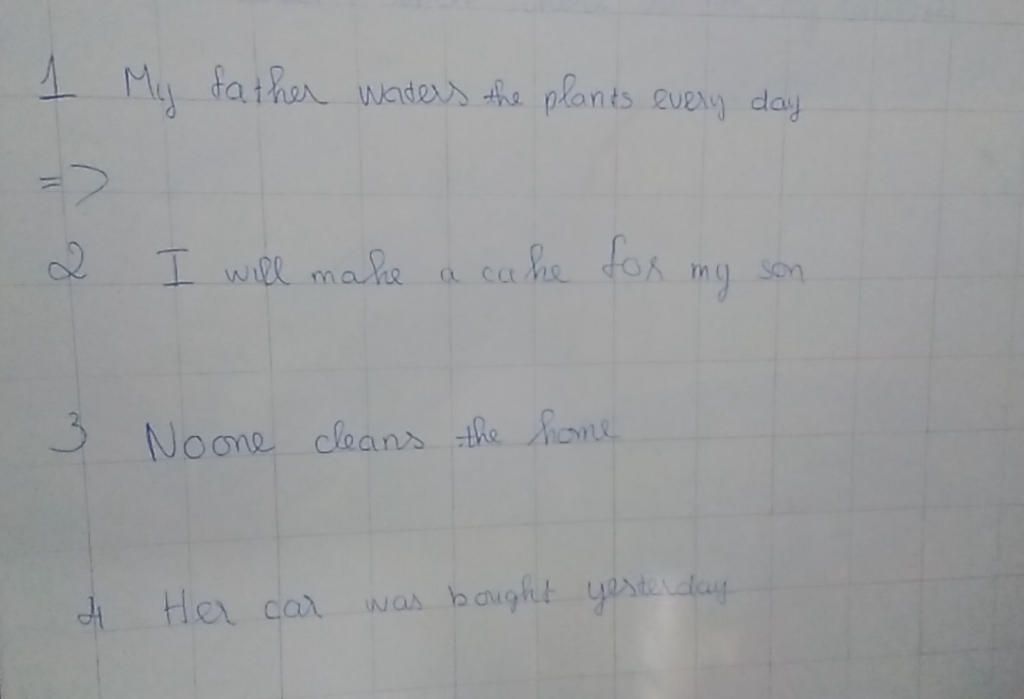 1 My father waters the plants every day
=>
2 I will make a cake for my son
3 Noone cleans the home
4 Her car was bought yesterday